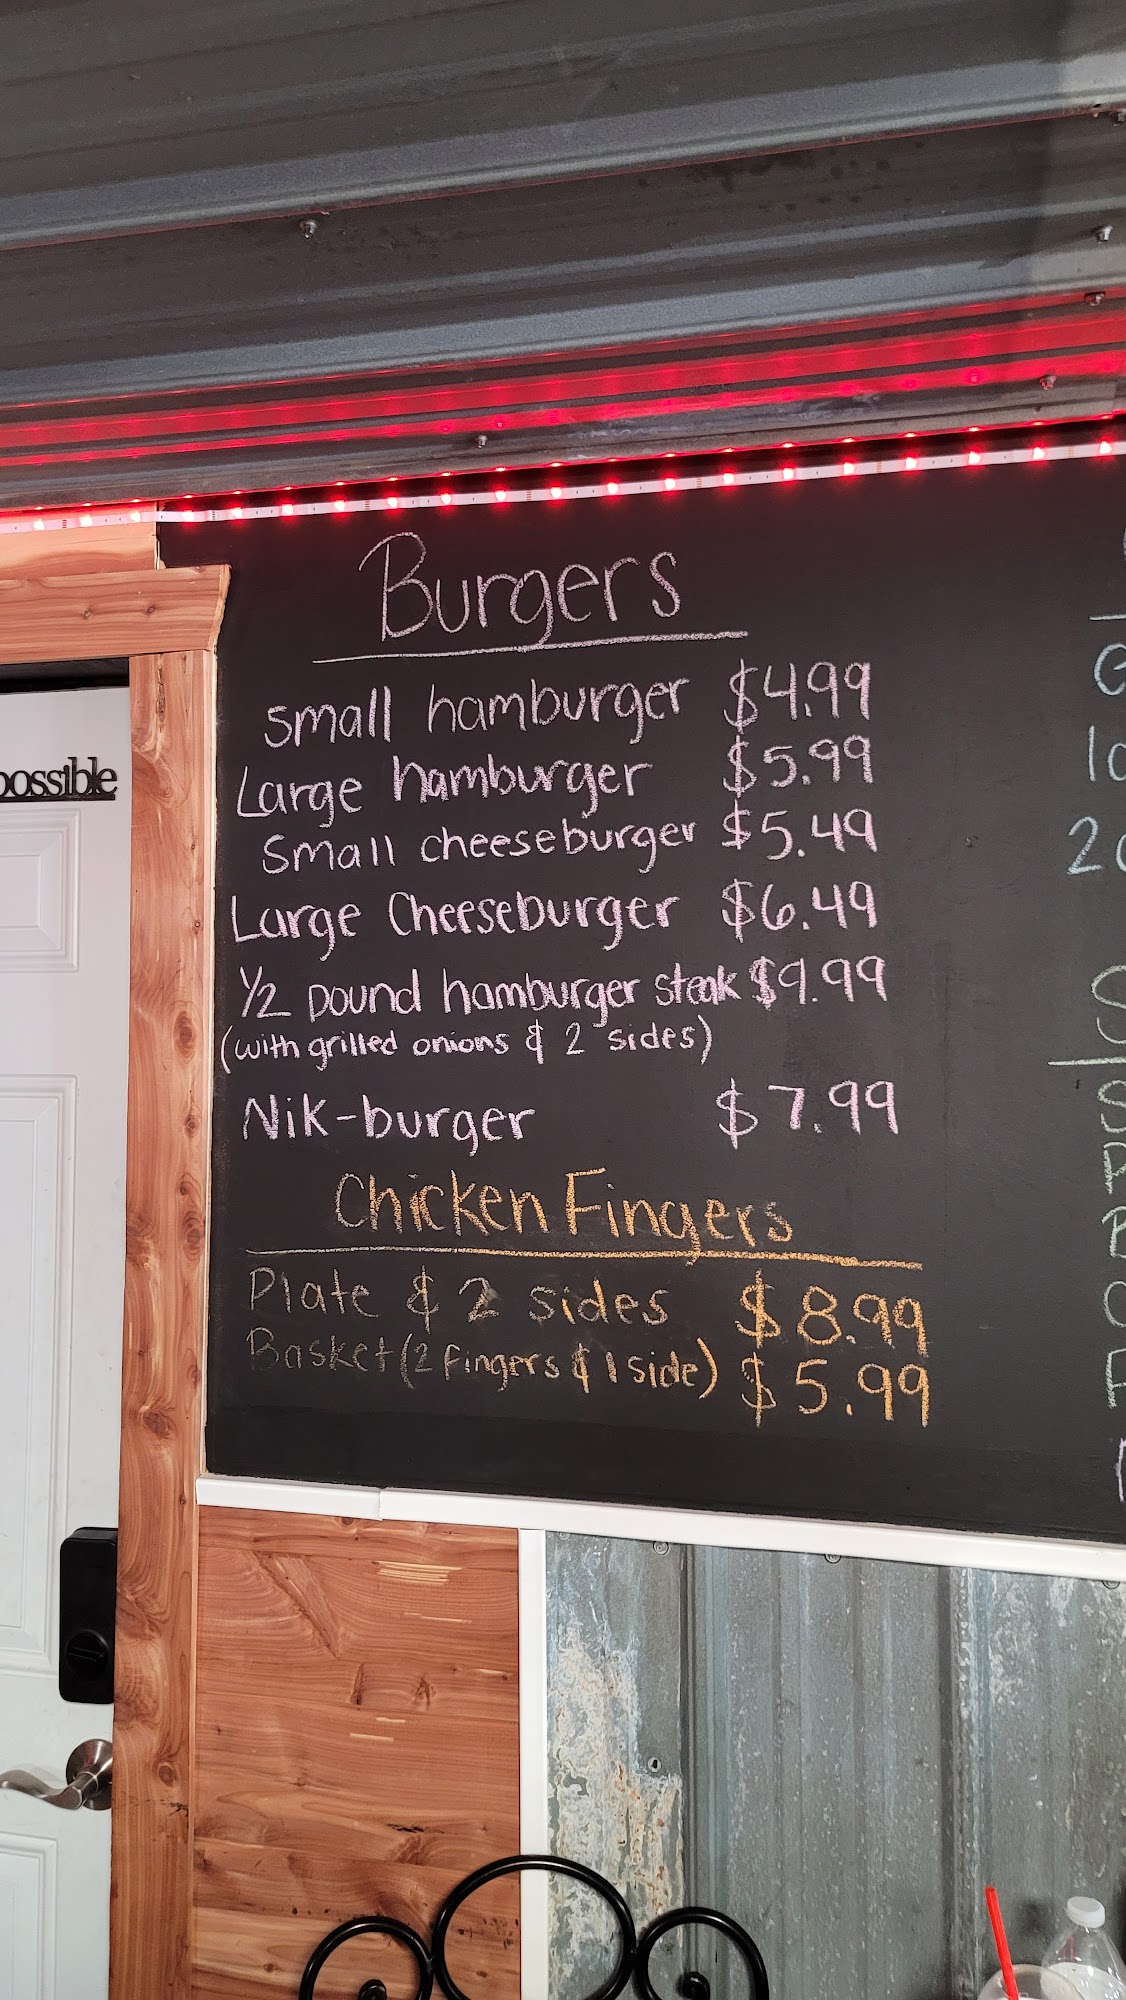 Burgers
Small hamburger $4.99
Large hamburger $5.99
Small cheeseburger $5.49
Large Cheeseburger $6.49
1/2 pound hamburger steak $9.99
(with grilled onions & 2 sides)
Nik-burger $7.99
Chicken Fingers
Plate & 2 sides $8.99
Basket (2 fingers & 1 side) $5.99
possible